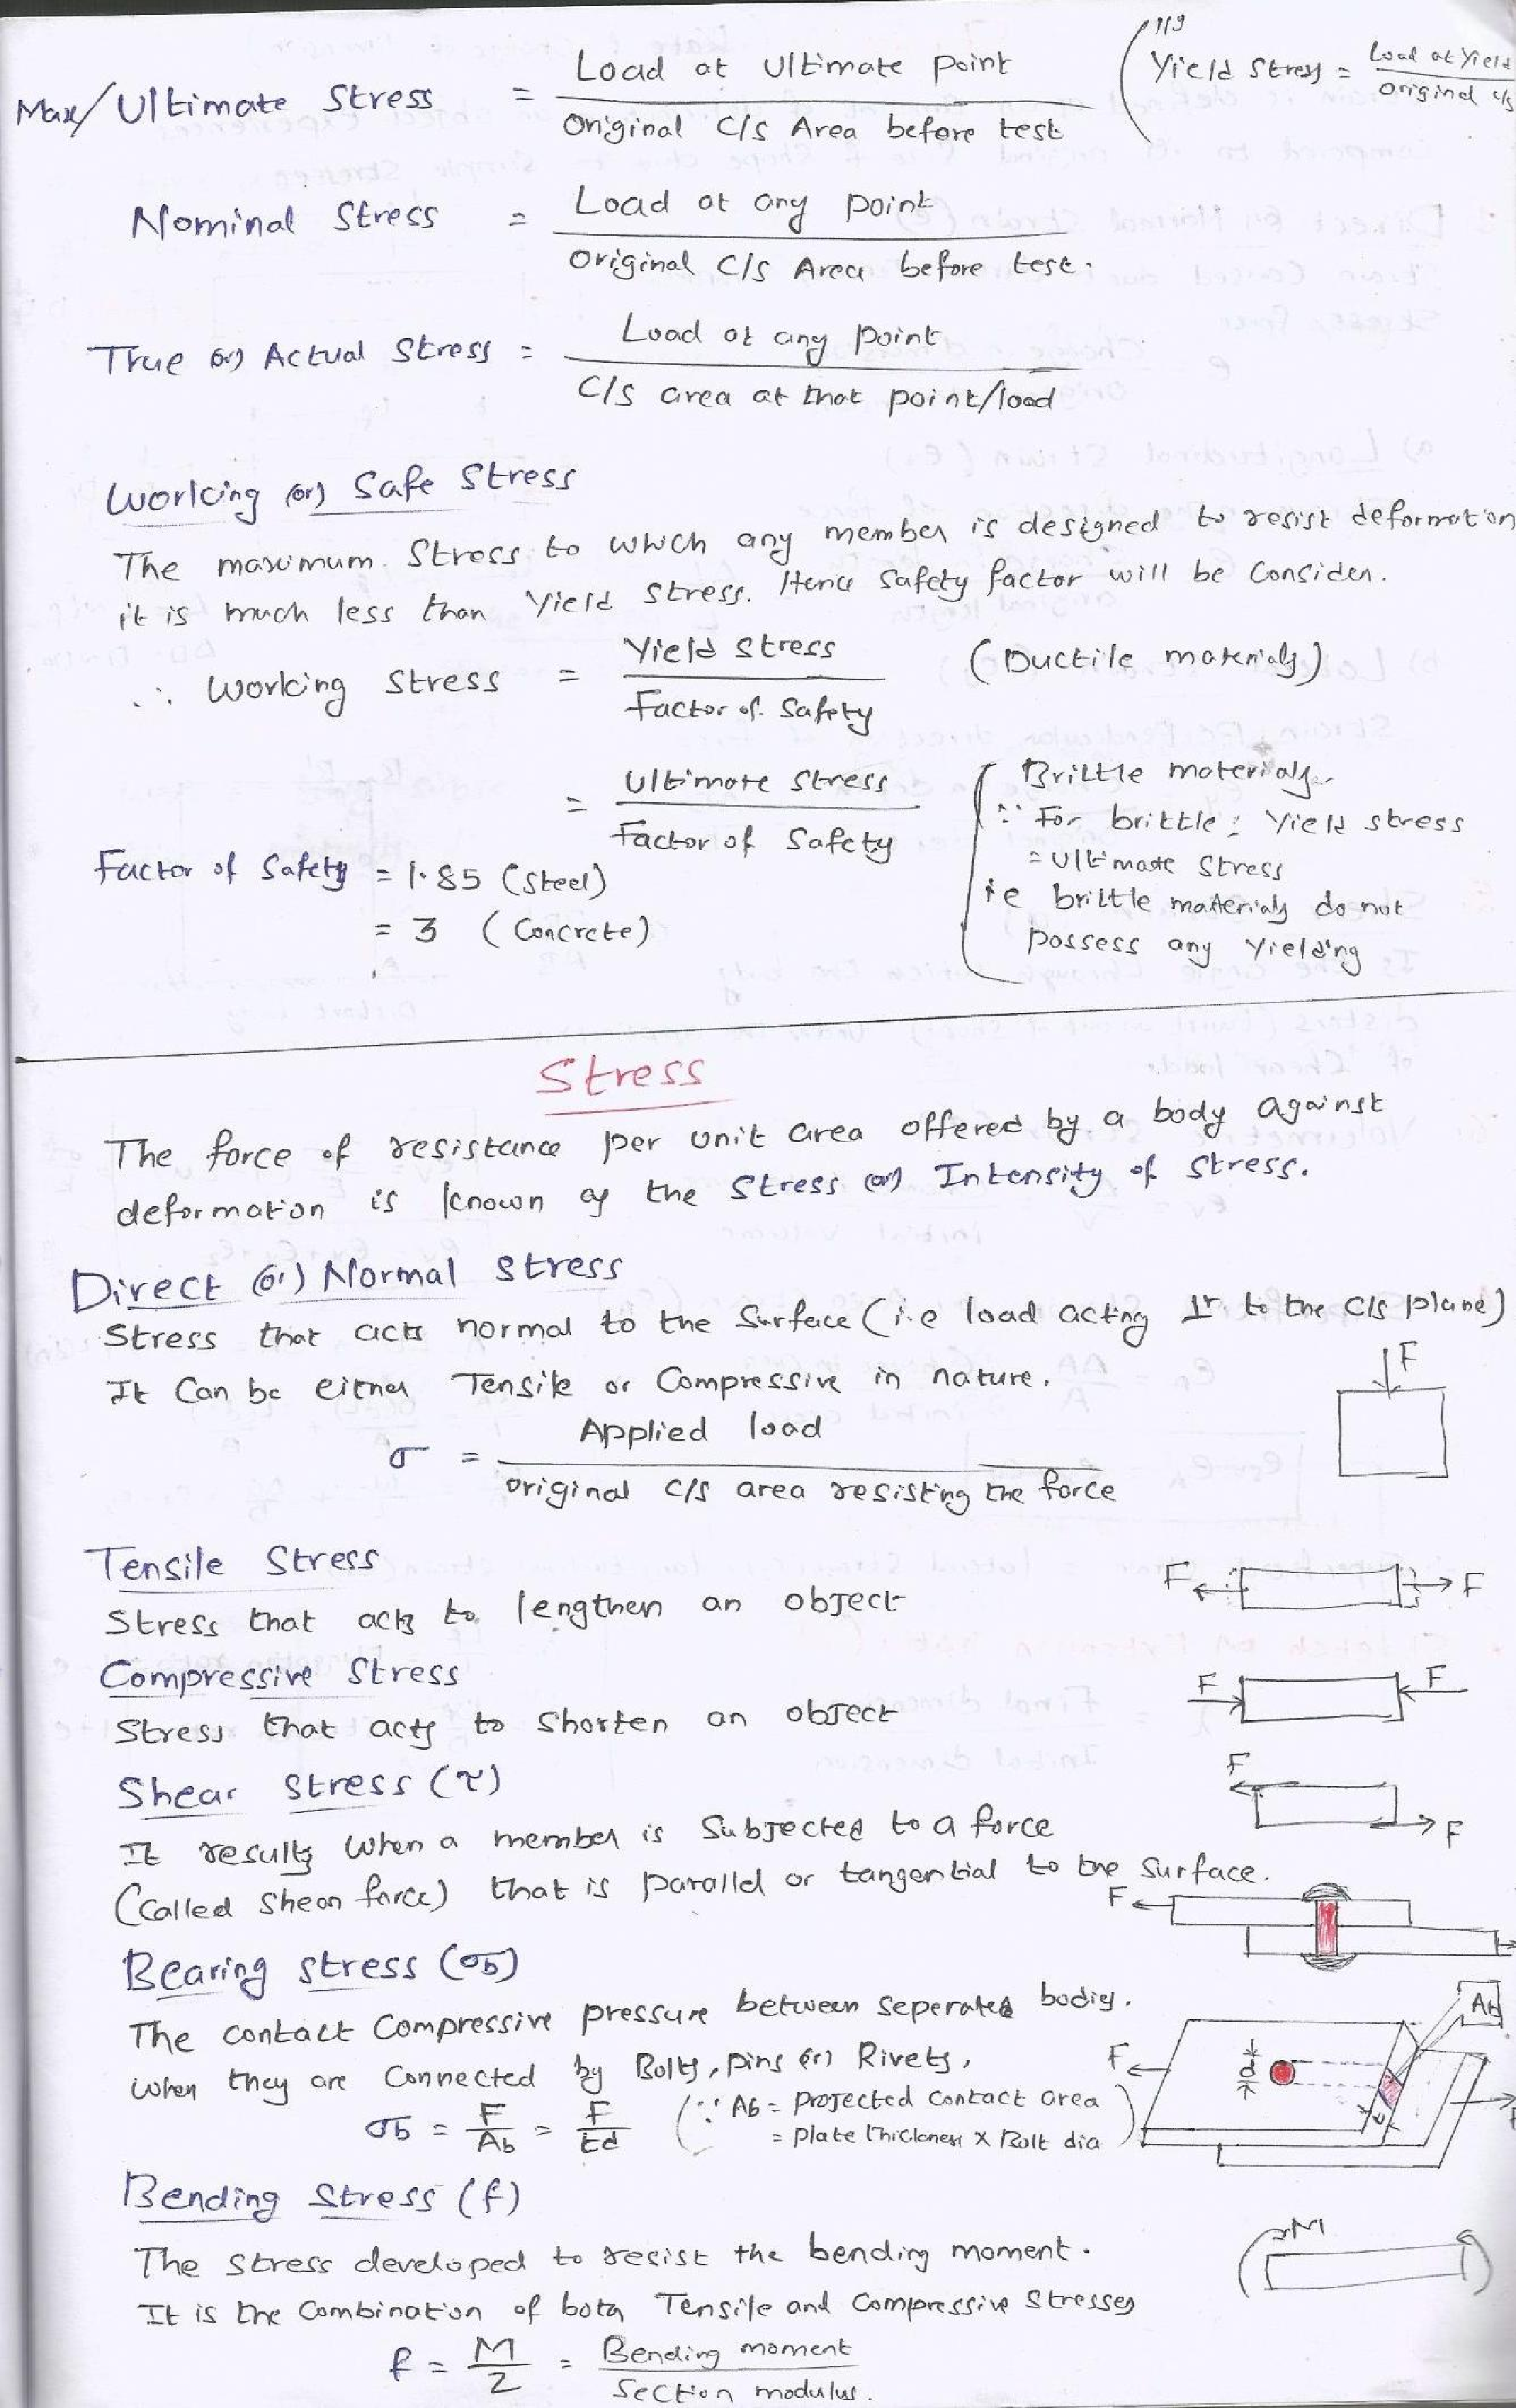 Max/Ultimate Stress = Load at Ultimate point / Original C/s Area before test
(llly Yield Stress = Load at Yield / Original c/s
Nominal Stress = Load at any point / Original C/s Area before test.
True (or) Actual Stress = Load at any point / C/s area at that point/load
Working (or) Safe Stress
The maximum Stress to which any member is designed to resist deformation
it is much less than Yield Stress. Hence Safety factor will be Consider.
∴ Working Stress = Yield Stress / Factor of Safety (Ductile materials)
= Ultimate Stress / Factor of Safety
Brittle materials
∵ For brittle: Yield stress
= Ultimate Stress
ie brittle materials do not
possess any Yielding
Factor of Safety = 1.85 (Steel)
= 3 (Concrete)
Stress
The force of resistance per unit area offered by a body against
deformation is known as the Stress (or) Intensity of Stress.
Direct (or) Normal Stress
Stress that acts normal to the Surface (i.e load acting ⊥r to the C/s plane)
It Can be either Tensile or Compressive in nature.
F
σ = Applied load / original c/s area resisting the force
Tensile Stress
F F
Stress that acts to lengthen an object
Compressive Stress
F F
Stress that acts to Shorten an object
Shear Stress (τ)
F
F
It results When a member is Subjected to a force
(Called Shear force) that is parallel or tangential to the Surface.
F
Bearing Stress (σb)
The contact Compressive pressure between seperated bodies.
Ab
When they are Connected by Bolts, pins (or) Rivets,
F d t
σb = F / Ab = F / td (∵ Ab = projected contact area
= plate thickness X Bolt dia)
Bending Stress (f)
M
The Stress developed to resist the bending moment.
It is the Combination of both Tensile and Compressive Stresses
f = M / Z = Bending moment / Section modulus.